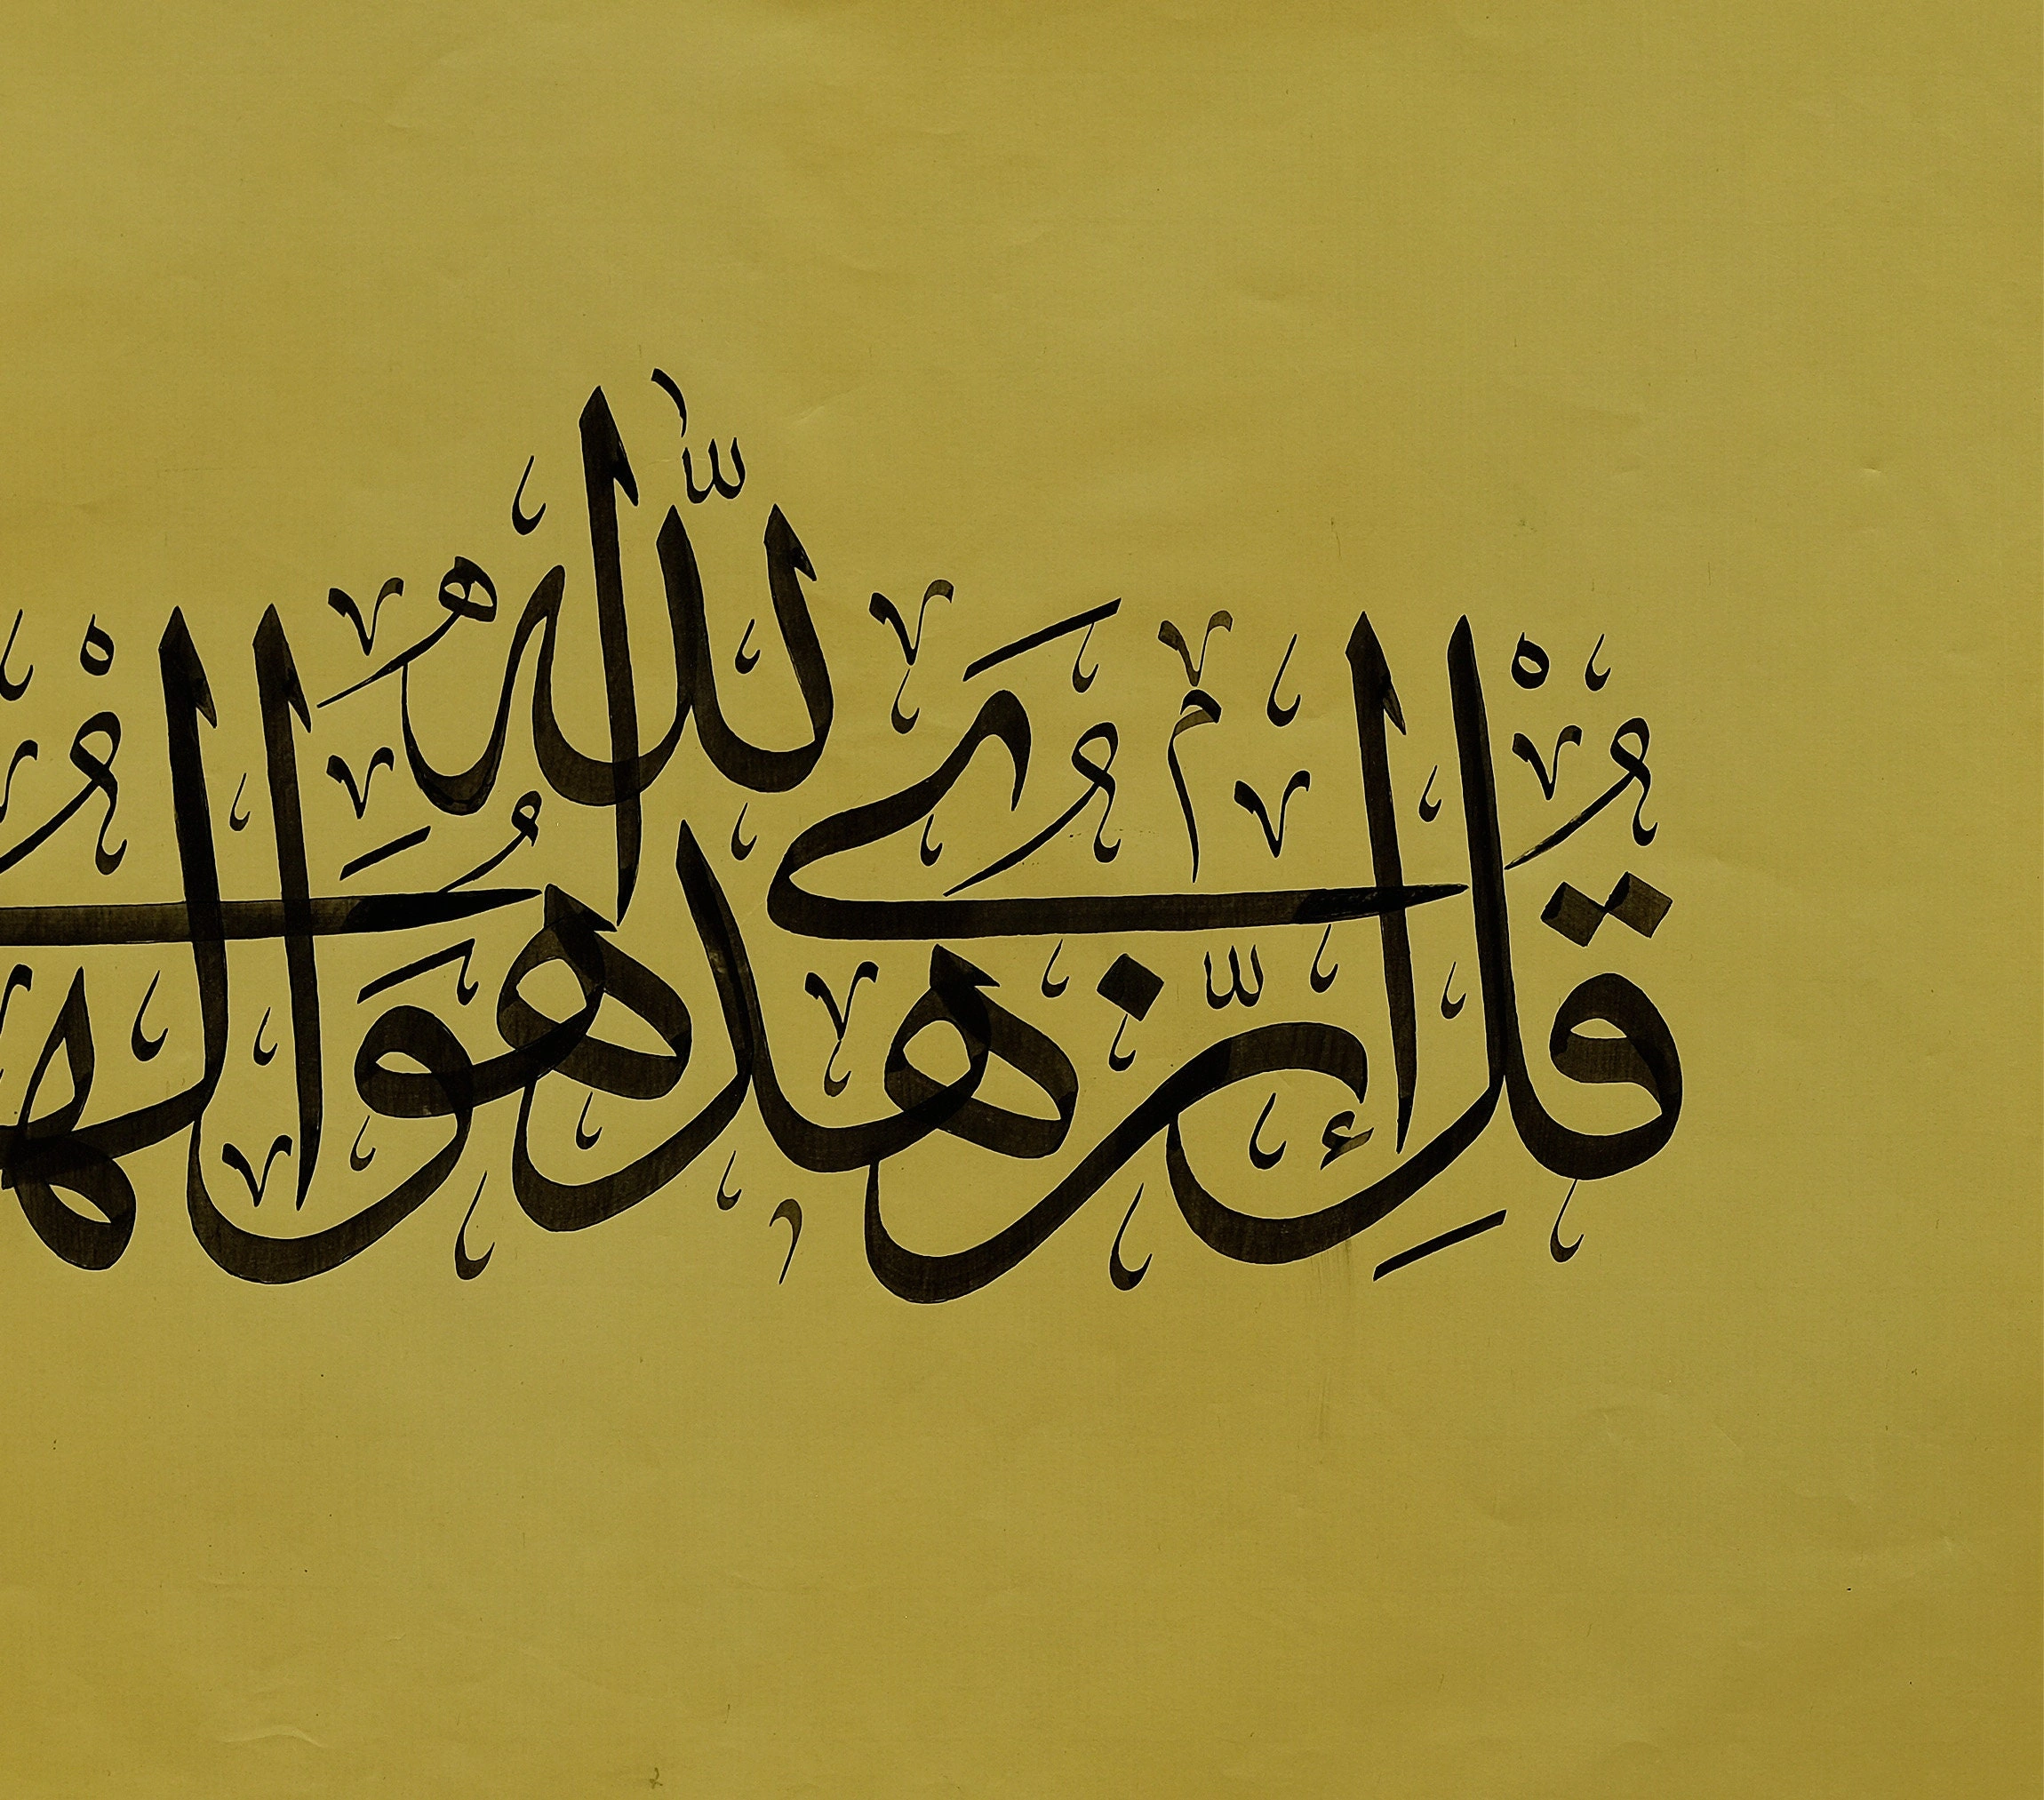 قُلْ إِنَّ هُدَى اللَّهِ هُوَ الْهُ